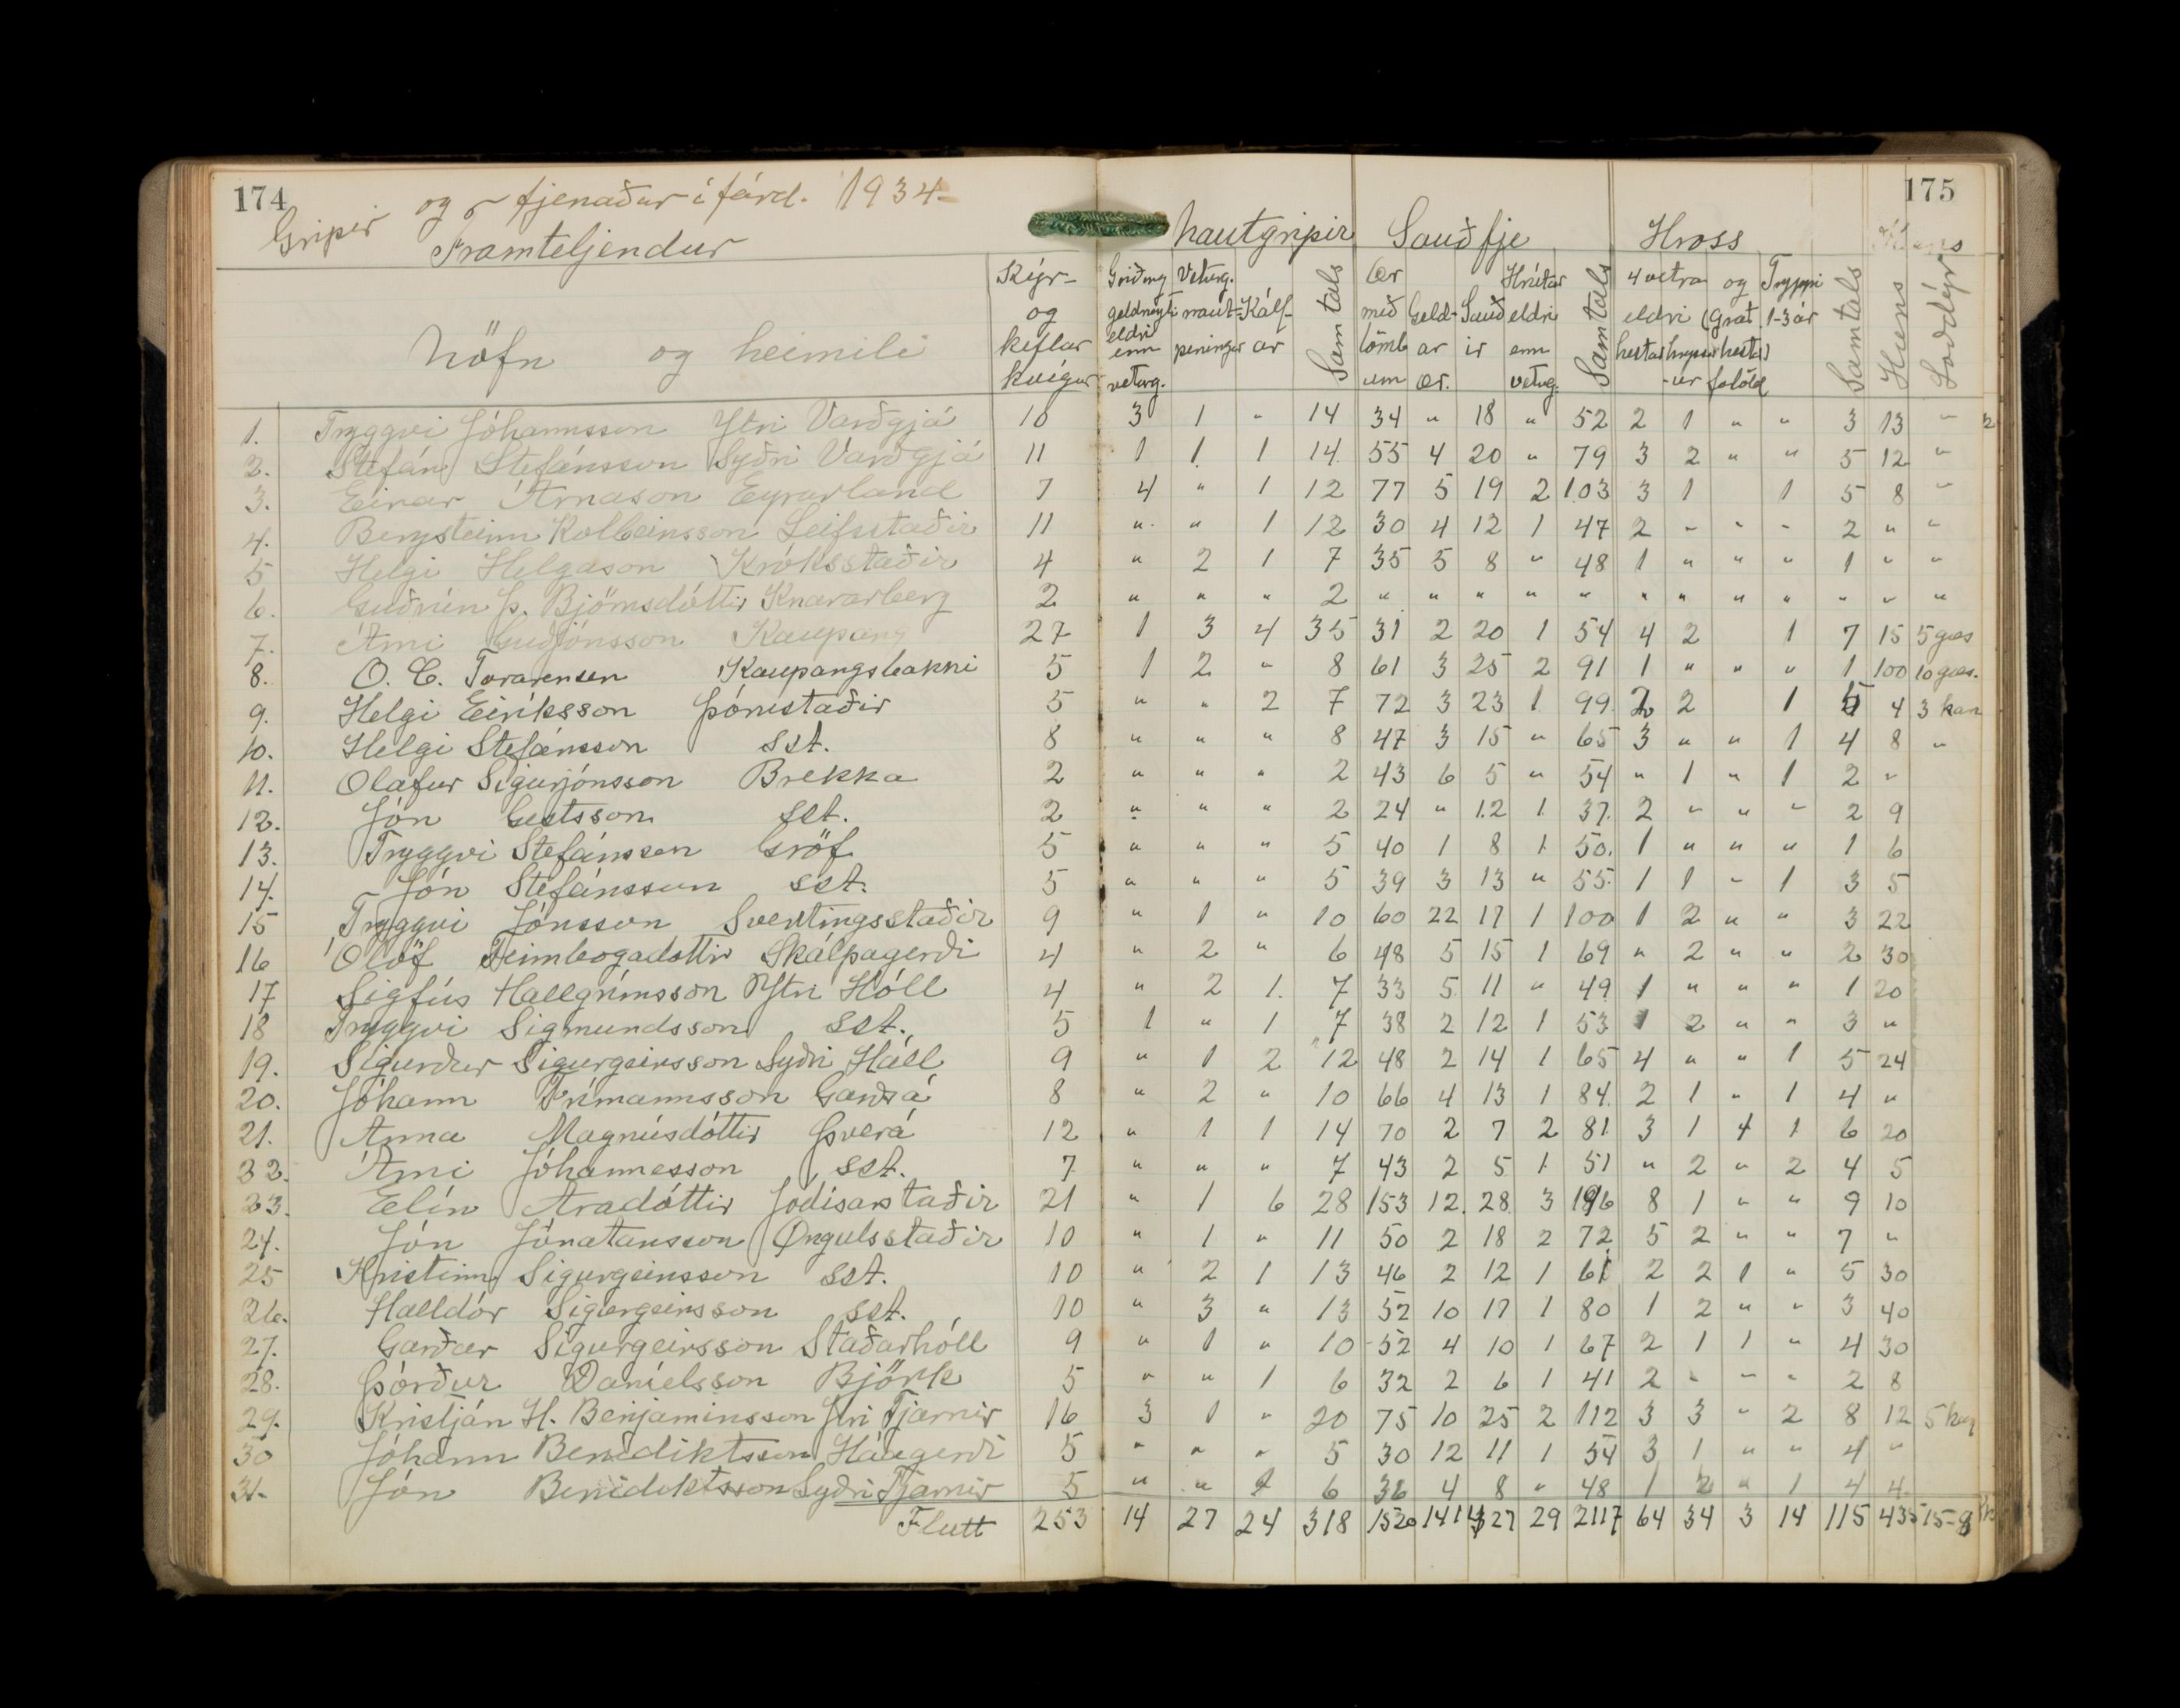 174
175
Gripir og fjenaður í fárd. 1934
Framteljendur Nautgripir Sauðfje Hross Hæns
Nöfn og heimili Kýr- og kefldar kvígur Griðung geldneyti eldri enn veturg. Veturg. naut-peningur Kálf-ar Samtals Ær með lömb um Geld-ar ær. Sauð ir Hrútar eldri enn vetug. Samtals 4 vetra og eldri (grat. hestar) hestar hryssur -ur folöld Tryppi 1-3 ár Samtals Hæns Loðdýr
1. Tryggvi Jóhannsson Ytri Varðgjá 10 3 1 " 14 34 " 18 " 52 2 1 " " 3 13 " 2
2. Stefán Stefánsson Syðri Varðgjá 11 1 1 1 14 55 4 20 " 79 3 2 " " 5 12 "
3. Einar Árnason Eyrarland 7 4 " 1 12 77 5 19 2 103 3 1 1 5 8 "
4. Bergsteinn Kolbeinsson Leifsstaðir 11 " " 1 12 30 4 12 1 47 2 " " " 2 " "
5 Helgi Helgason Króksstaðir 4 " 2 1 7 35 5 8 " 48 1 " " " 1 " "
6. Guðrún Þ. Björnsdóttir Knararberg 2 " " " 2 " " " " " " " " " " " "
7. Árni Guðjónsson Kaupang 27 1 3 4 35 31 2 20 1 54 4 2 1 7 15 5 gæs
8. O. C. Torarensen Kaupangsbakki 5 1 2 " 8 61 3 25 2 91 1 " " " 1 100 10 gæs.
9. Helgi Eiríksson Þórustaðir 5 " " 2 7 72 3 23 1 99 2 2 1 5 4 3 kan
10. Helgi Stefánsson sst. 8 " " " 8 47 3 15 " 65 3 " " 1 4 8 "
11. Olafur Sigurjónsson Brekka 2 " " " 2 43 6 5 " 54 " 1 " 1 2 "
12. Jón Gestsson sst. 2 " " " 2 24 " 12 1 37 2 " " " 2 9
13. Tryggvi Stefánsson Gröf 5 " " " 5 40 1 8 1 50. 1 " " " 1 6
14. Jón Stefánsson sst. 5 " " " 5 39 3 13 " 55. 1 1 " 1 3 5
15 Tryggvi Jónsson Svertingsstaðir 9 " 1 " 10 60 22 17 1 100 1 2 " " 3 22
16 Ólöf Heimbogadottir Skálpagerði 4 " 2 " 6 48 5 15 1 69 " 2 " " 2 30
17 Sigfús Hallgrímsson Ytri Hóll 4 " 2 1. 7 33 5 11 " 49 1 " " " 1 20
18 Tryggvi Sigmundsson sst. 5 1 " 1 7 38 2 12 1 53 1 2 " " 3 "
19. Sigurður Sigurgeirsson Syðri Hóll 9 " 1 2 12 48 2 14 1 65 4 " " 1 5 24
20. Jóhann Frímannsson Garðsá 8 " 2 " 10 66 4 13 1 84. 2 1 " 1 4 "
21. Anna Magnúsdóttir Þverá 12 " 1 1 14 70 2 7 2 81 3 1 1 1 6 20
22. Árni Jóhannesson sst. 7 " " " 7 43 2 5 1 51 " 2 " 2 4 5
23. Elín Aradóttir Jódísarstaðir 21 " 1 6 28 153 12. 28. 3 196 8 1 " " 9 10
24. Jón Jónatansson Öngulsstaðir 10 " 1 " 11 50 2 18 2 72 5 2 " " 7 "
25 Kristinn Sigurgeirsson sst. 10 " 2 1 13 46 2 12 1 61 2 2 1 " 5 30
26. Halldór Sigurgeirsson sst. 10 " 3 " 13 52 10 17 1 80 1 2 " " 3 40
27. Garðar Sigurgeirsson Staðarhóll 9 " 1 " 10 52 4 10 1 67 2 1 1 " 4 30
28. Þórður Daníelsson Björk 5 " " 1 6 32 2 6 1 41 2 " " " 2 8
29. Kristján H. Benjamínsson Ytri Tjarnir 16 3 1 " 20 75 10 25 2 112 3 3 " 2 8 12 5
30 Jóhann Benediktsson Háagerði 5 " " " 5 30 12 11 1 54 3 1 " " 4 "
31. Jón Benidiktsson Syðri Tjarnir 5 " " 1 6 36 4 8 " 48 1 2 " 1 4 4
Flutt 253 14 27 24 318 1520 141 427 29 2117 64 34 3 14 115 435 15-8